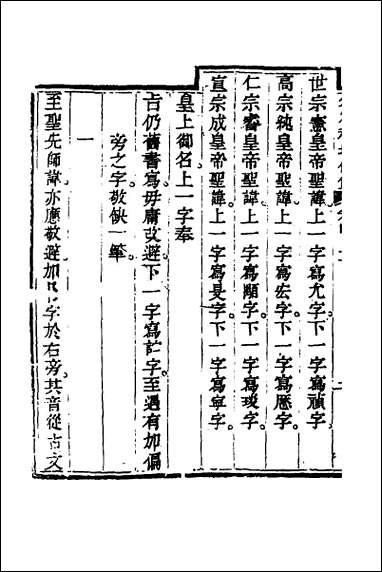 世宗憲皇帝聖諱上一字寫允字下一字寫禎字
高宗純皇帝聖諱上一字寫宏字下一字寫厯字
仁宗睿皇帝聖諱上一字寫顒字下一字寫琰字
宣宗成皇帝聖諱上一字寫旻字下一字寫寧字
皇上御名上一字奉
旨仍舊書寫毋庸改避下一字寫詝字至遇有加偏
旁之字敬缺一筆
一
至聖先師諱亦應敬避加阝字於右旁其音從古文